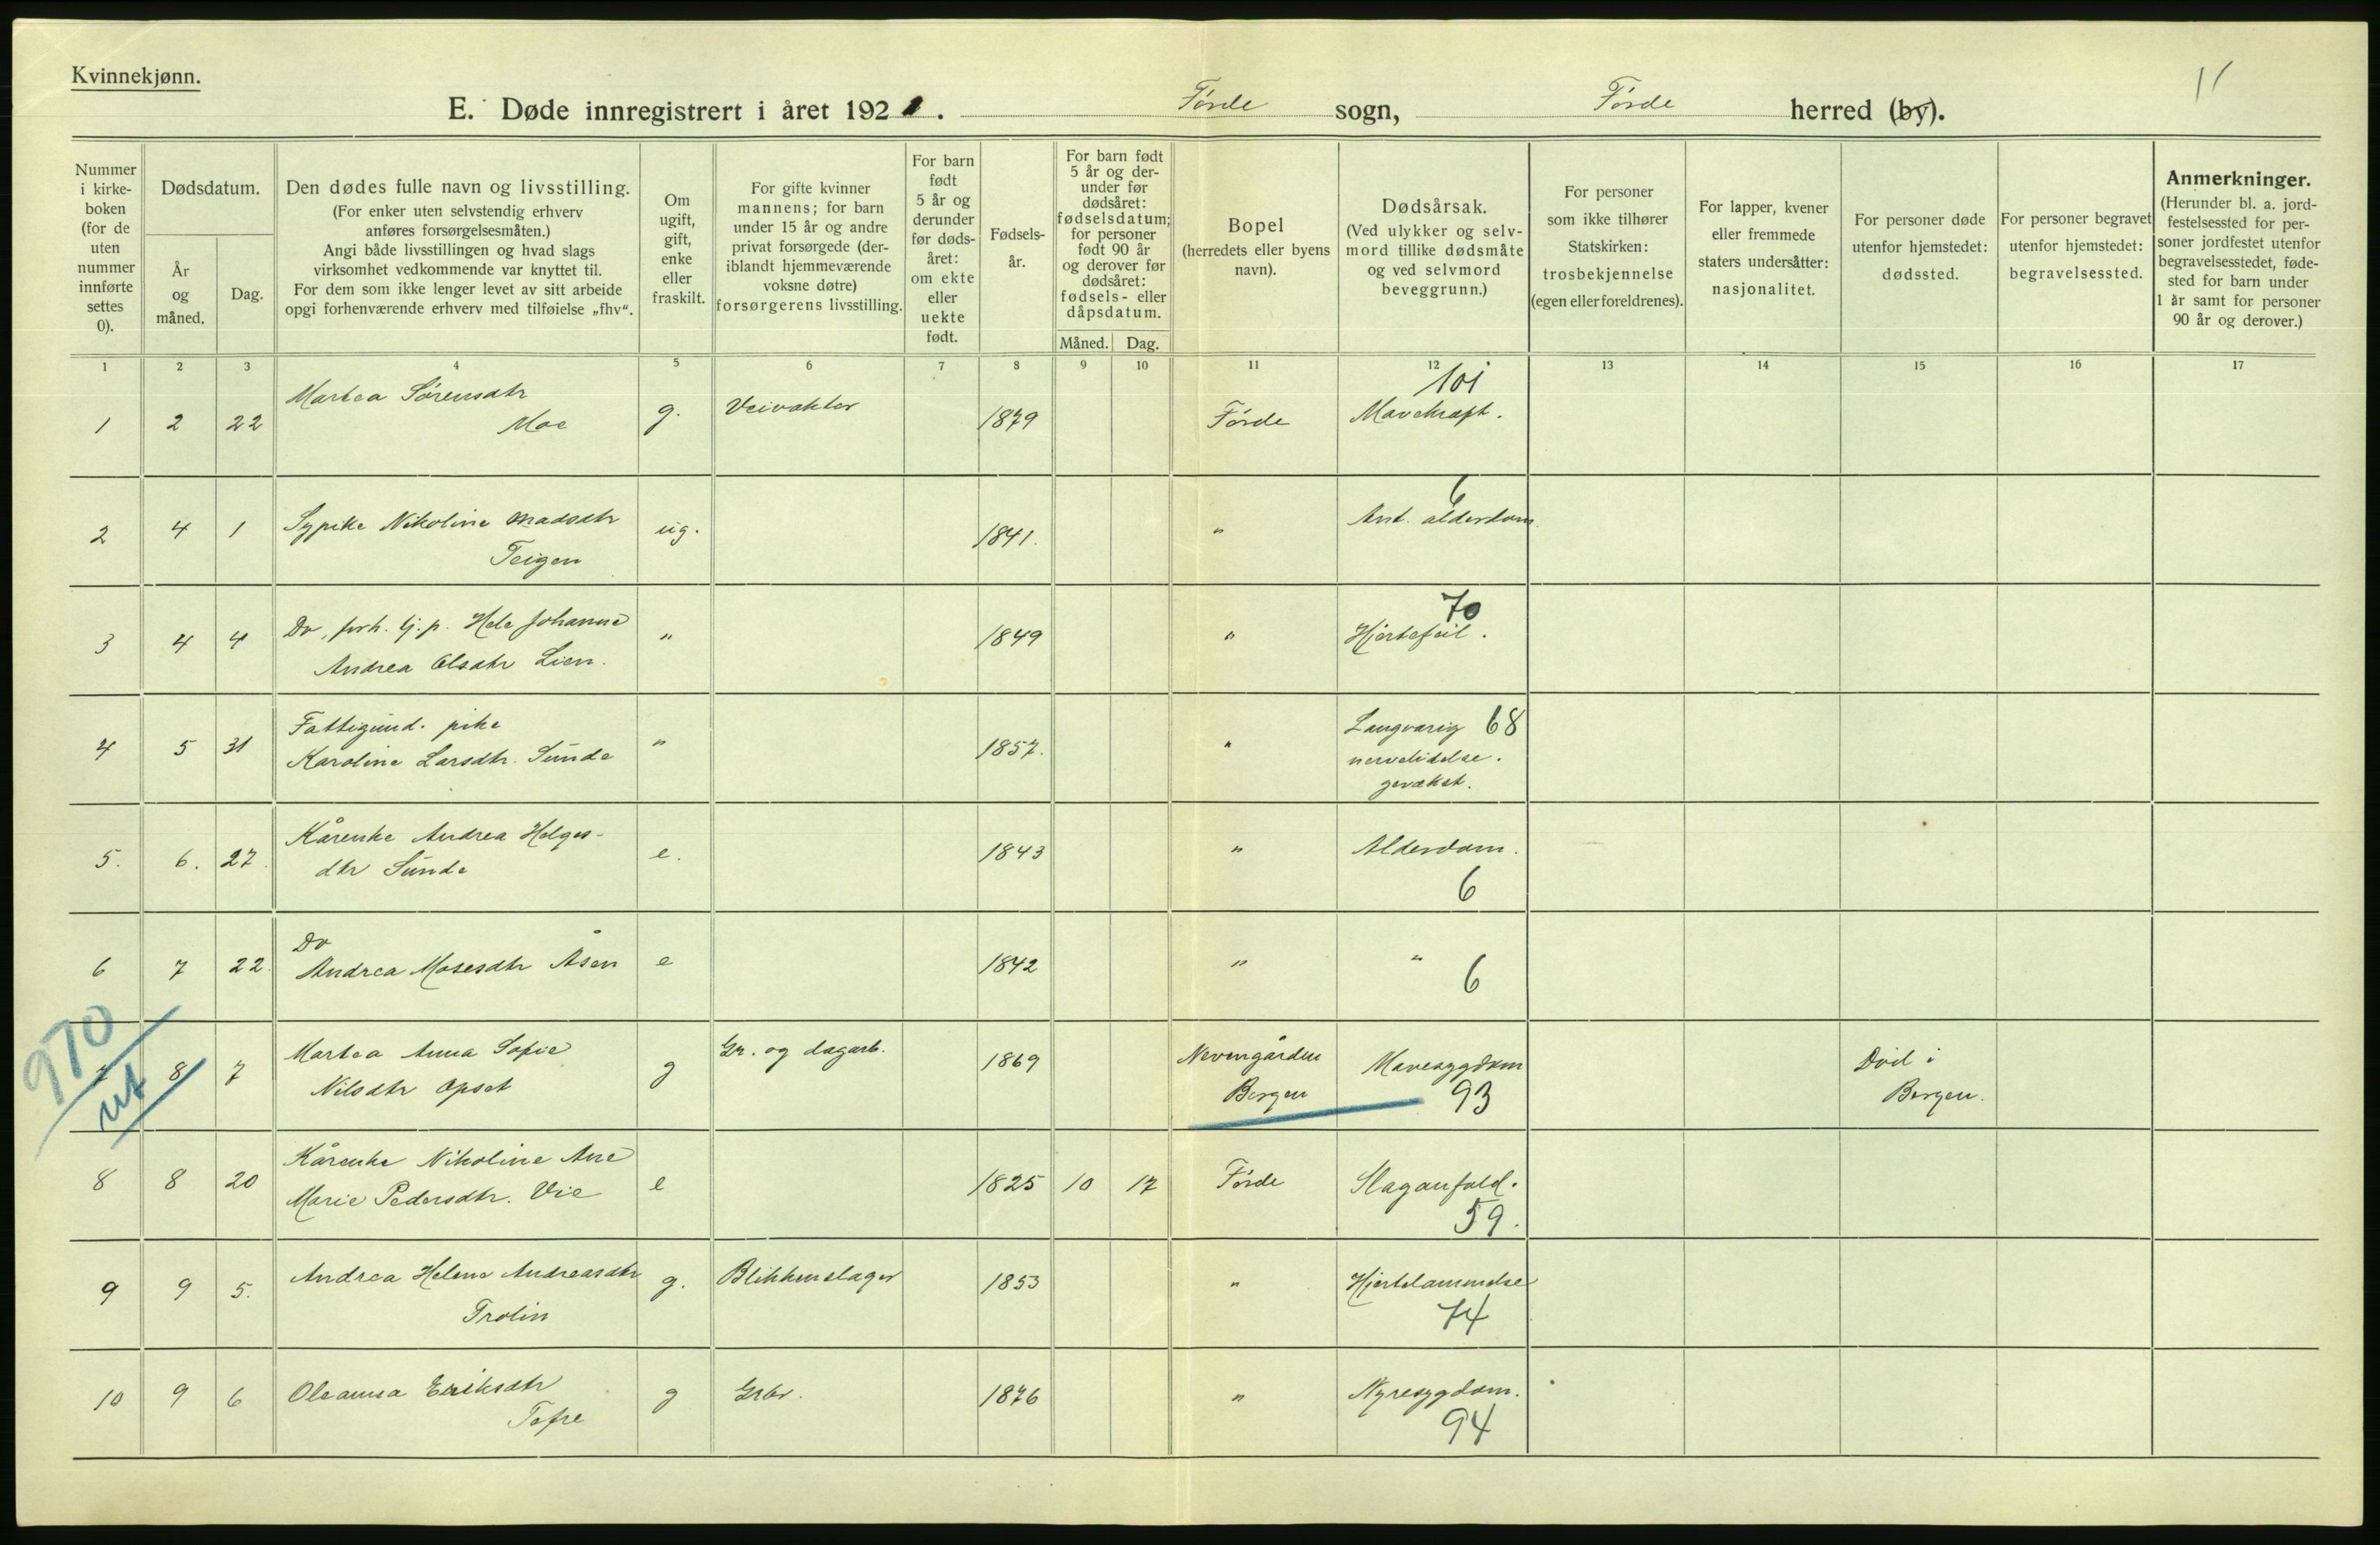 Kvinnekjønn.
11
E. Døde innregistrert i året 1921. Førde sogn, Førde herred (by).
Nummer
i kirke-
boken
(for de
uten
nummer
innførte
settes
0).
Dødsdatum.
År
og
måned.
Dag.
Den dødes fulle navn og livsstilling.
(For enker uten selvstendig erhverv
anføres forsørgelsesmåten.)
Angi både livsstillingen og hvad slags
virksomhet vedkommende var knyttet til.
For dem som ikke lenger levet av sitt arbeide
opgi forhenværende erhverv med tilføielse „fhv“.
Om
ugift,
gift,
enke
eller
fraskilt.
For gifte kvinner
mannens; for barn
under 15 år og andre
privat forsørgede (der-
iblandt hjemmeværende
voksne døtre)
forsørgerens livsstilling.
For barn
født
5 år og
derunder
før døds-
året:
om ekte
eller
uekte
født.
Fødsels-
år.
For barn født
5 år og der-
under før
dødsåret:
fødselsdatum;
for personer
født 90 år
og derover før
dødsåret:
fødsels- eller
dåpsdatum.
Måned. Dag.
Bopel
(herredets eller byens
navn).
Dødsårsak.
(Ved ulykker og selv-
mord tillike dødsmåte
og ved selvmord
beveggrunn.)
For personer
som ikke tilhører
Statskirken:
trosbekjennelse
(egen eller foreldrenes).
For lapper, kvener
eller fremmede
staters undersåtter:
nasjonalitet.
For personer døde
utenfor hjemstedet:
dødssted.
For personer begravet
utenfor hjemstedet:
begravelsessted.
Anmerkninger.
(Herunder bl. a. jord-
festelsessted for per-
soner jordfestet utenfor
begravelsesstedet, føde-
sted for barn under
1 år samt for personer
90 år og derover.)
1 2 3 4 5 6 7 8 9 10 11 12 13 14 15 16 17
101
Martea Sørensdtr
1 2 22 Moe g. Veivokter 1879 Førde Mavekræft.
6
2 4 1 Sypike Nikoline Madsdtr ug. 1841. " Ant. alderdom
Teigen
70
3 4 4 Do, forh. tj.p. Hele Johanne " 1849 " Hjertefeil.
Andrea Olsdtr Lien.
Fattigund. pike Langvarig 68
4 5 31 Karoline Larsdtr. Sunde " 1857. " nervelidelse.
gevækst.
Kårenke Andrea Helges-
5. 6. 27. dtr Sunde e. 1843 " Alderdom.
6
Do
6 7 22. Andrea Mosesdtr Åsen e 1842 " "
6
970
ut
Martea Anna Sofie Gr. og dagarb. Nevengården
7 8 7 Nilsdtr Opset g 1869 Bergen Mavesygdom Død i
93 Bergen.
Kårenke Nikoline Ane
8 8 20 Marie Pedersdtr. Vie e 1825 10 17 Førde Slaganfald.
59.
9 9 5. Andrea Helene Andreasdtr g. Blikkenslager 1853 " Hjertelammelse
Trolin 74
10 9 6 Oleanna Eriksdtr g Grbr. 1876 " Nyresygdom.
Tefre 94